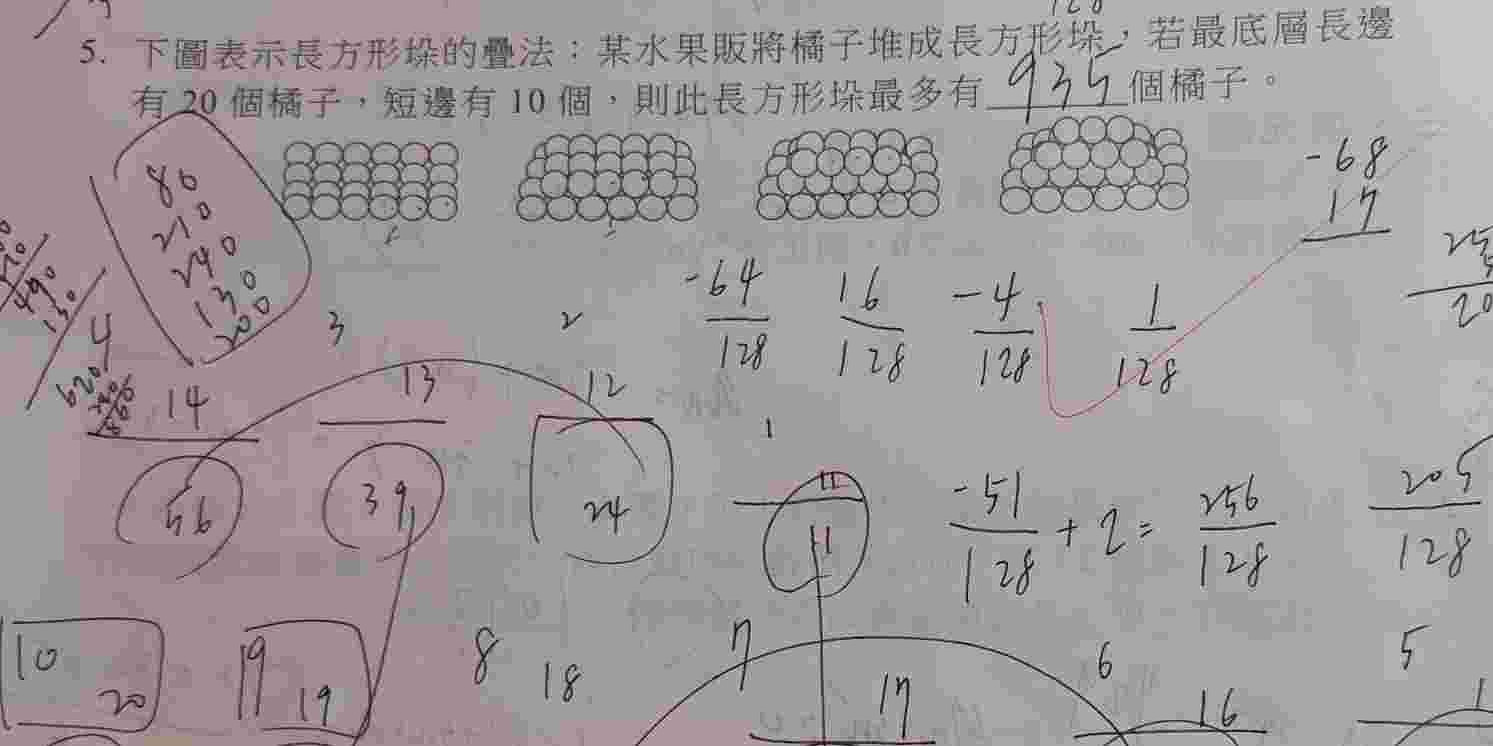 128
5. 下圖表示長方形垛的疊法：某水果販將橘子堆成長方形垛，若最底層長邊
有 20 個橘子，短邊有 10 個，則此長方形垛最多有 935 個橘子。
80
210
240
130
200
-68
17
490
130
620
4
3
2
-64/128 16/128 -4/128 1/128
14 13 12 1 11
56 39 24 11
-51/128 + 2 = 256/128 205/128
10 20 9 19 8 18 7 17 6 16 5